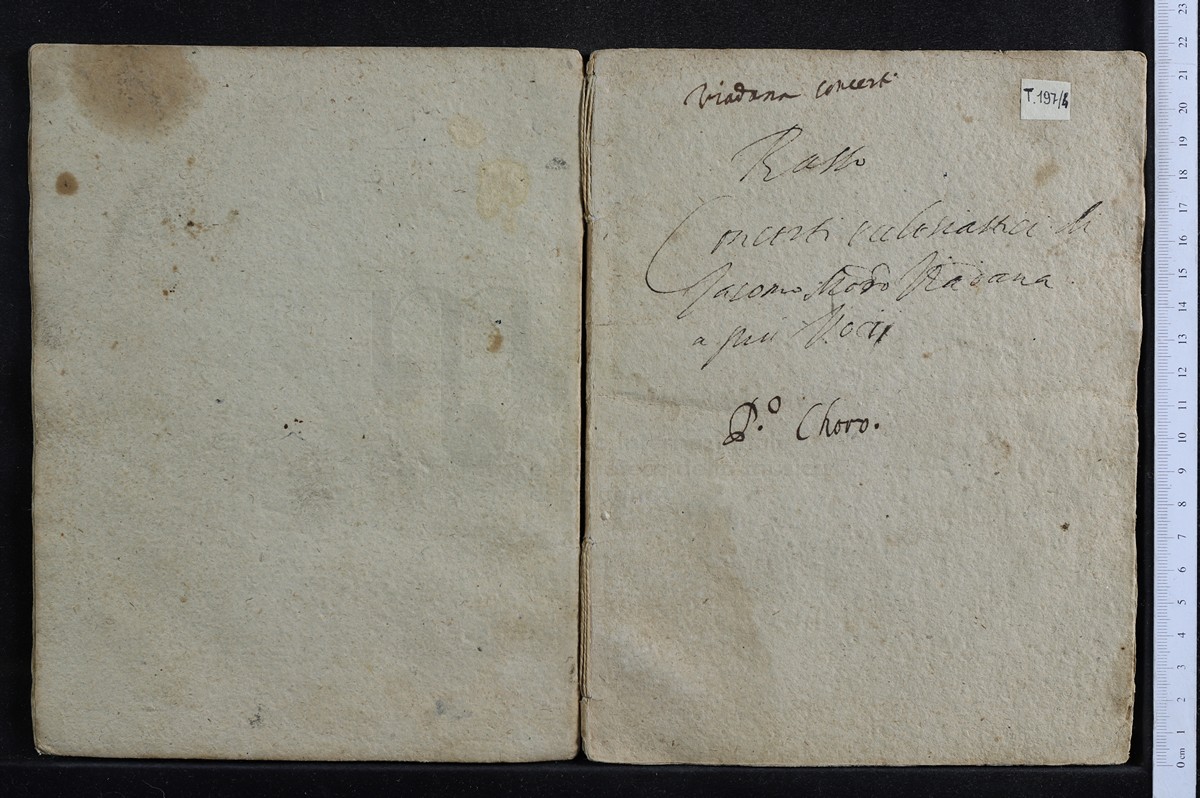 Viadana concerti
T.197/4
Basso
Concerti ecclesiastici di
Giacomo Moro Viadana
a più Vocij
P.º Choro.
23
22
21
20
19
18
17
16
15
14
13
12
11
10
9
8
7
6
5
4
3
2
1
0 cm